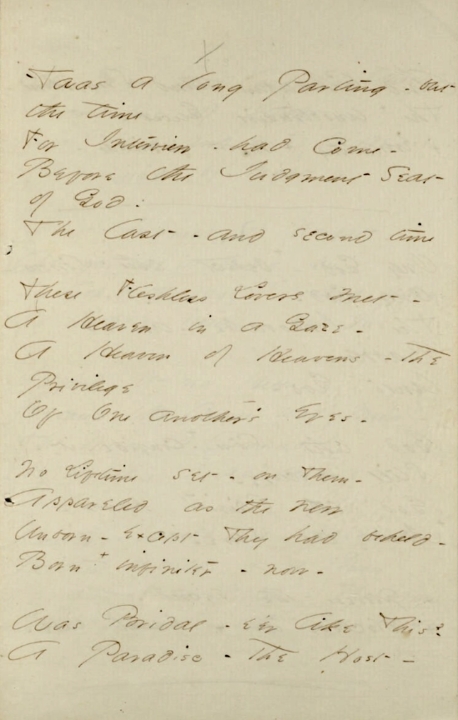 'Twas a long Parting - but
the time
For Interview - had Come -
Before the Judgment Seat
of God -
The Last - and second time

These Fleshless Lovers met -
A Heaven in a Gaze -
A Heaven of Heavens - the
Privilege
Of One another's Eyes -

No Lifetime set - on Them -
Appareled as the new
Unborn - Except They had beheld -
Born + infiniter - now -

Was Bridal - e'er like This?
A Paradise - the Host -